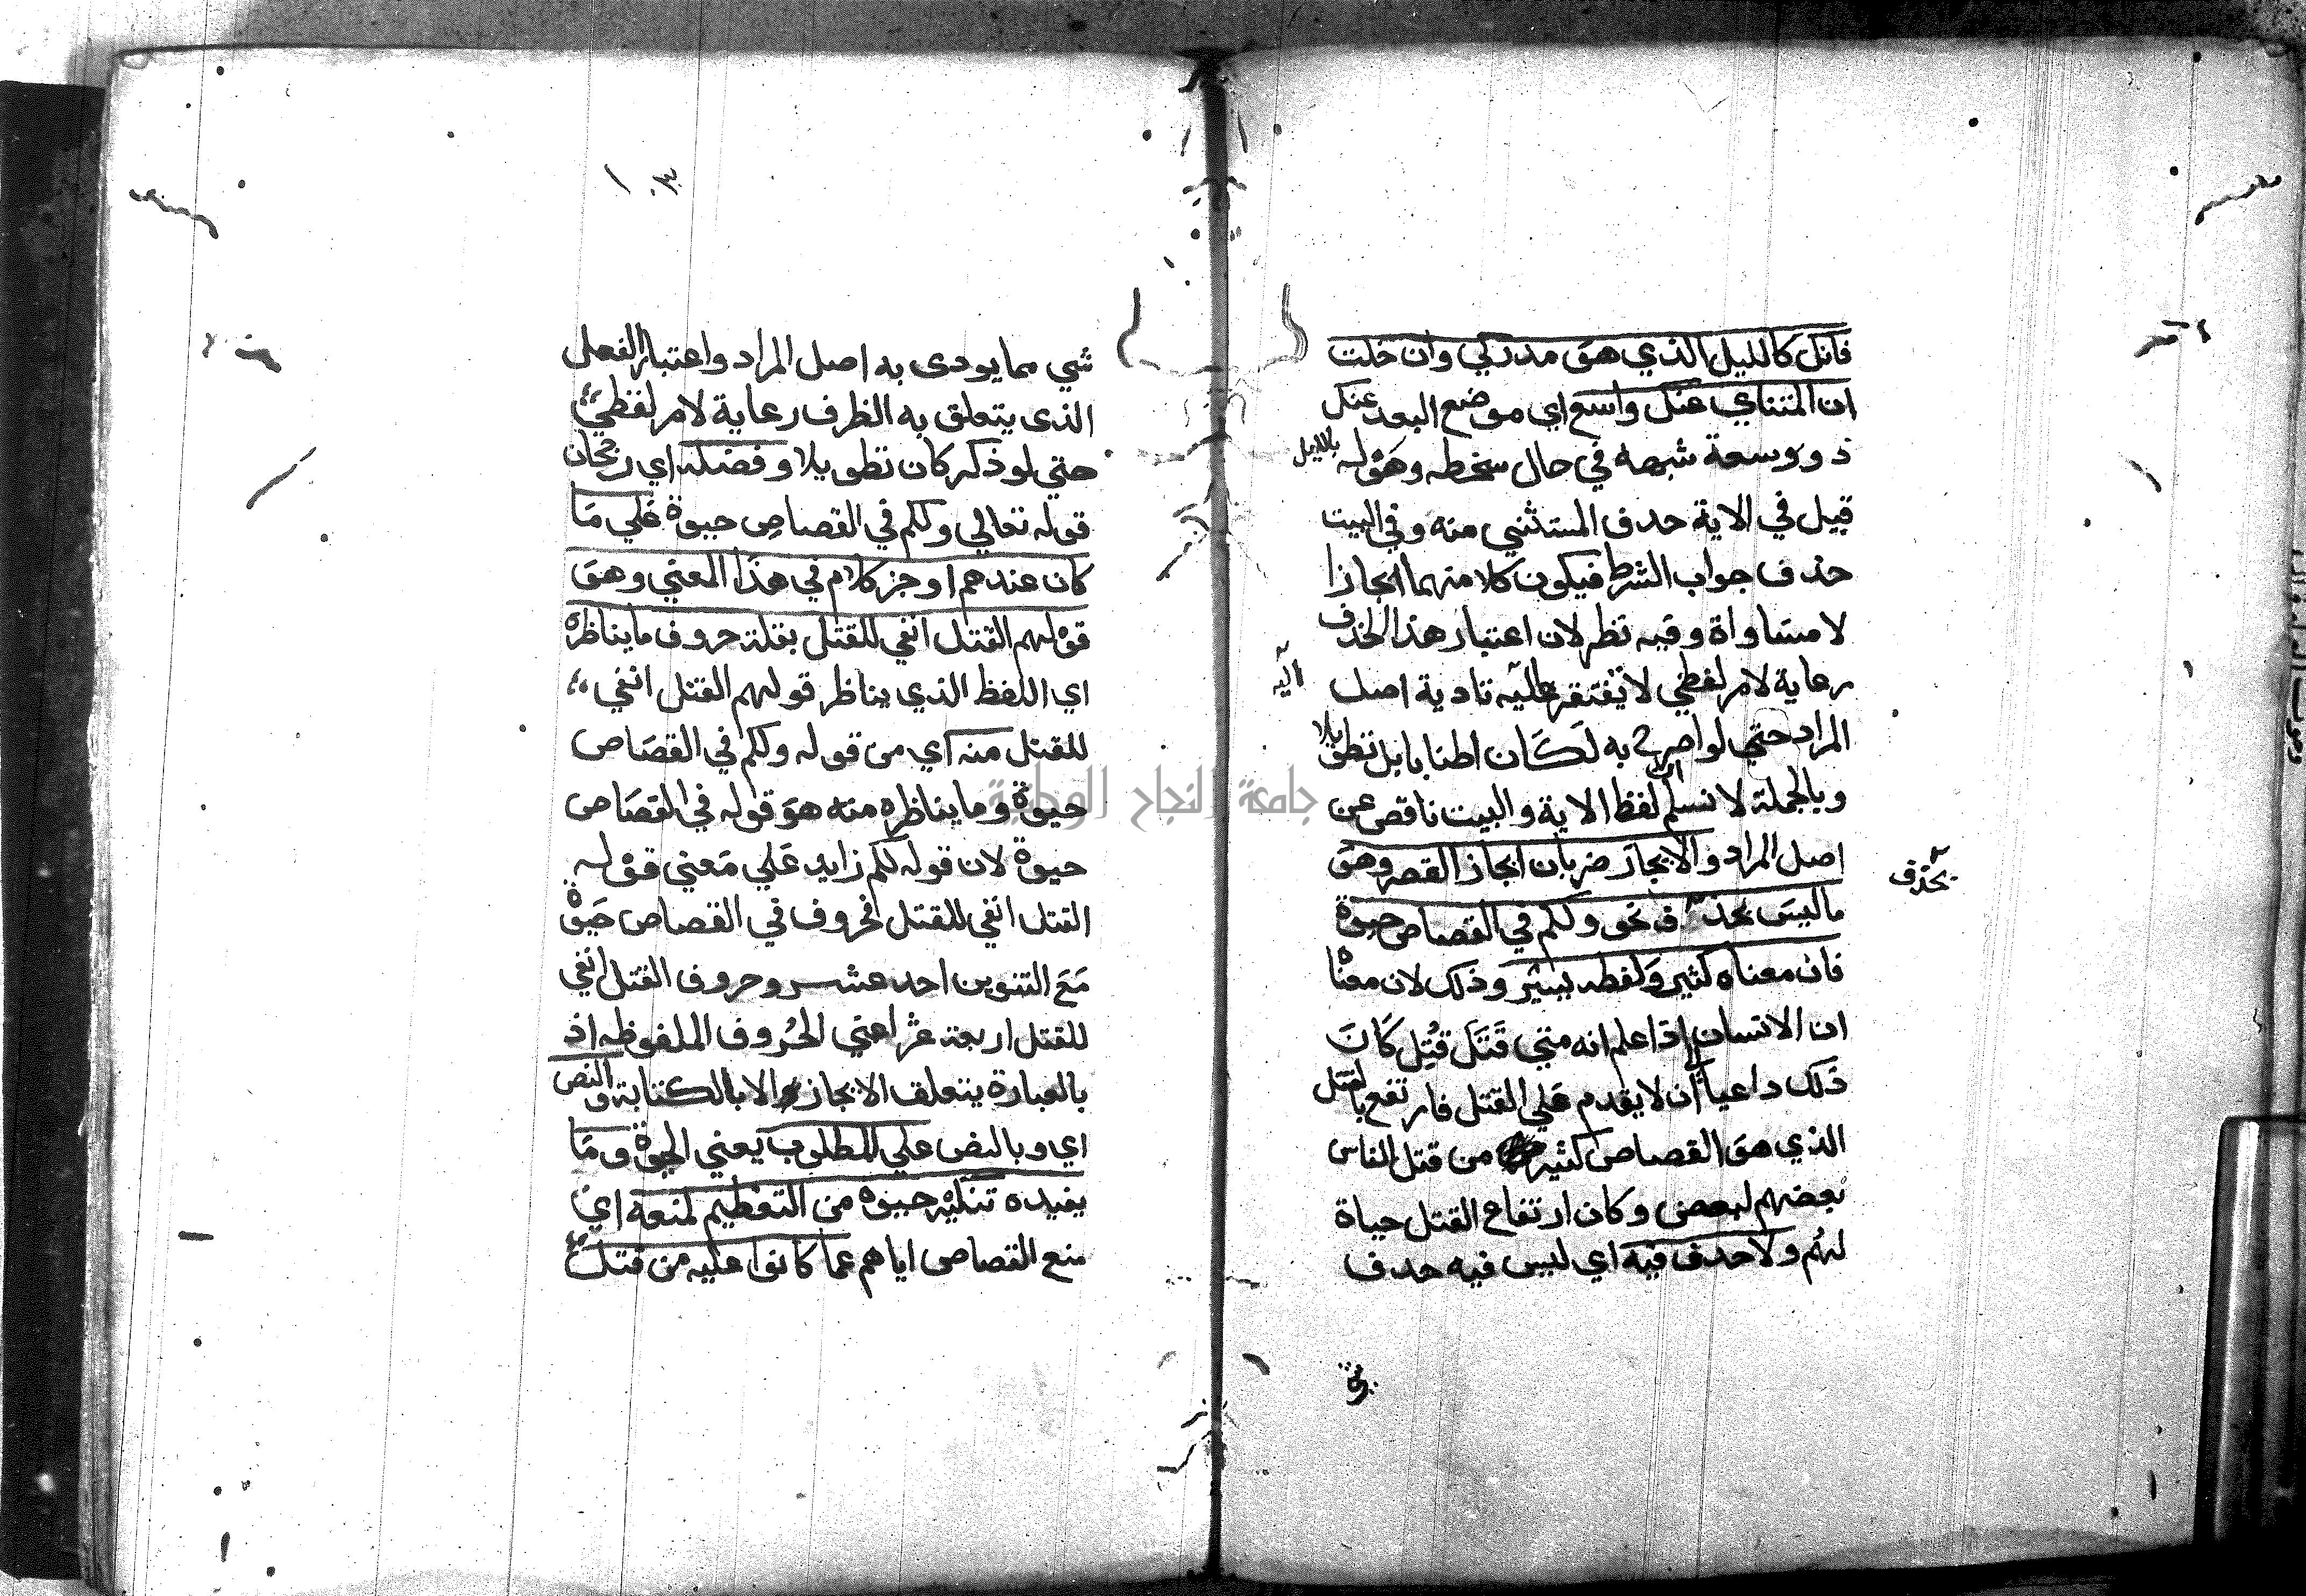 فانك كالليل الذي هو مدركي وان خلت
ان المتناي عنك واسع اي موضع البعد عنك
ذو وسعة شبهه في حال سخطه وهوله بالليل
قيل في الاية حدف المستثني منه وفي البيت
حذف جواب الشرط فيكون كلا منهما ايجازا
لا مساواة وفيه نظر لان اعتبار هذا الحذف
رعاية لامر لفظي لا يفتقر عاليه تادية اصل
اليه
المراد حتي لو اصرح به لكان اطنابا بل تطويلا
وبالجملة لا نسلم ان لفظ الاية والبيت ناقص عن
اصل المراد والايجاز ضربان ايجاز القصر وهو
بحذف
ما ليس بحذف نحو ولكم في القصاص حيوة
فان معناه كثير ولفظه يسير وذلك لان معناه
ان الانسان اذا علم انه متي قتل قتل كان
ذلك داعيا الي ان لا يقدم علي القتل فارتفع بالقتل
الذي هو القصاص كثير من قتل الناس
بعضهم لبعض وكان ارتفاع القتل حياة
لهم ولا حدف فيه اي ليس فيه حدف
شي مما يودي به اصل المراد واعتبار الفعل
الذي يتعلق به الظرف رعاية لامر لفظي
حتي لو ذكر كان تطويلا وفضله اي رجحان
قوله تعالي ولكم في القصاص حيوة علي ما
كان عندهم اوجز كلام في هذا المعني وهو
قولهم القتل انفي للقتل بقلة حروف ما يناظره
اي اللفظ الذي يناظر قولهم القتل انفي
للقتل منه اي من قوله ولكم في القصاص
حيوة وما يناظره منه هو قوله في القصاص
حيوة لان قوله لكم زايد علي معني قوله
القتل انفي للقتل فحروف في القصاص حيوة
مع التنوين احد عشر وحروف القتل انفي
للقتل اربعة عشر اعني الحروف الملفوظه اذ
بالعبارة يتعلق الايجاز لا بالكتابة والنص
اي وبالنص علي المطلوب يعني الحيوة وما
يفيده تنكير حيوة من التعظيم لمنعه اي
منع القصاص اياهم عما كانوا عليه من قتل
جامعة النجاح الوطنية